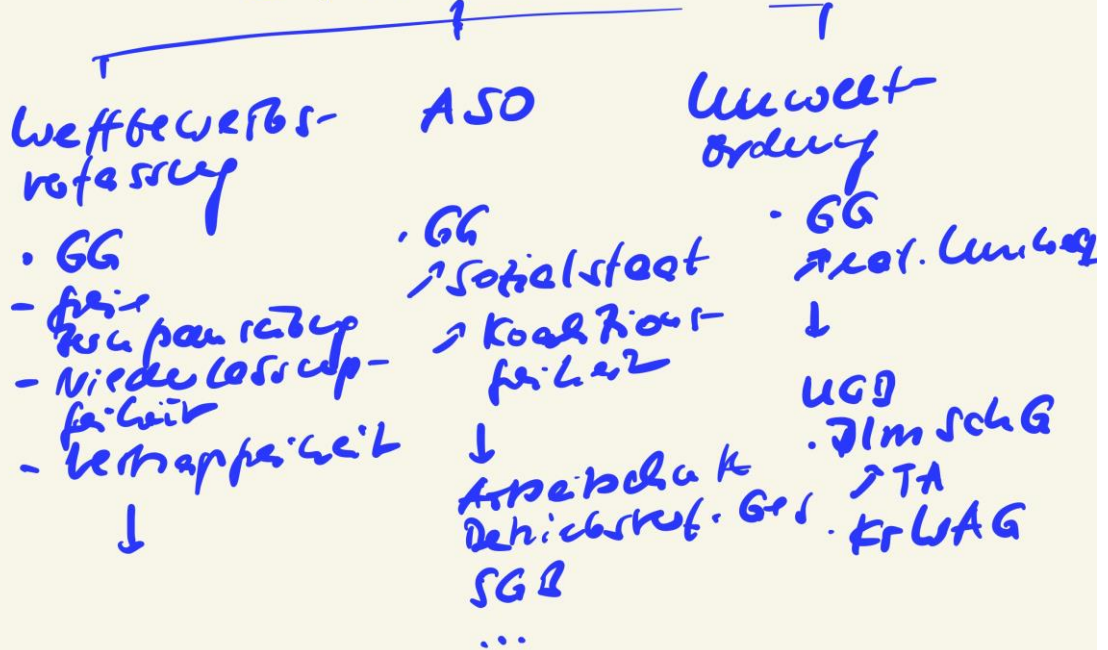 Wettbewerbs-
verfassung
• GG
- freie
- Niederlassungs-
freiheit
- Vertragsfreiheit
↓
ASO
• GG
↗ Sozialstaat
↗ Koalitions-
freiheit
↓
Arbeitsschutz
Betriebsverf. Ges.
SGB
...
Umwelt-
ordnung
• GG
↗ nat.
↓
UGB
• BImSchG
↗ TA
• KrWAG